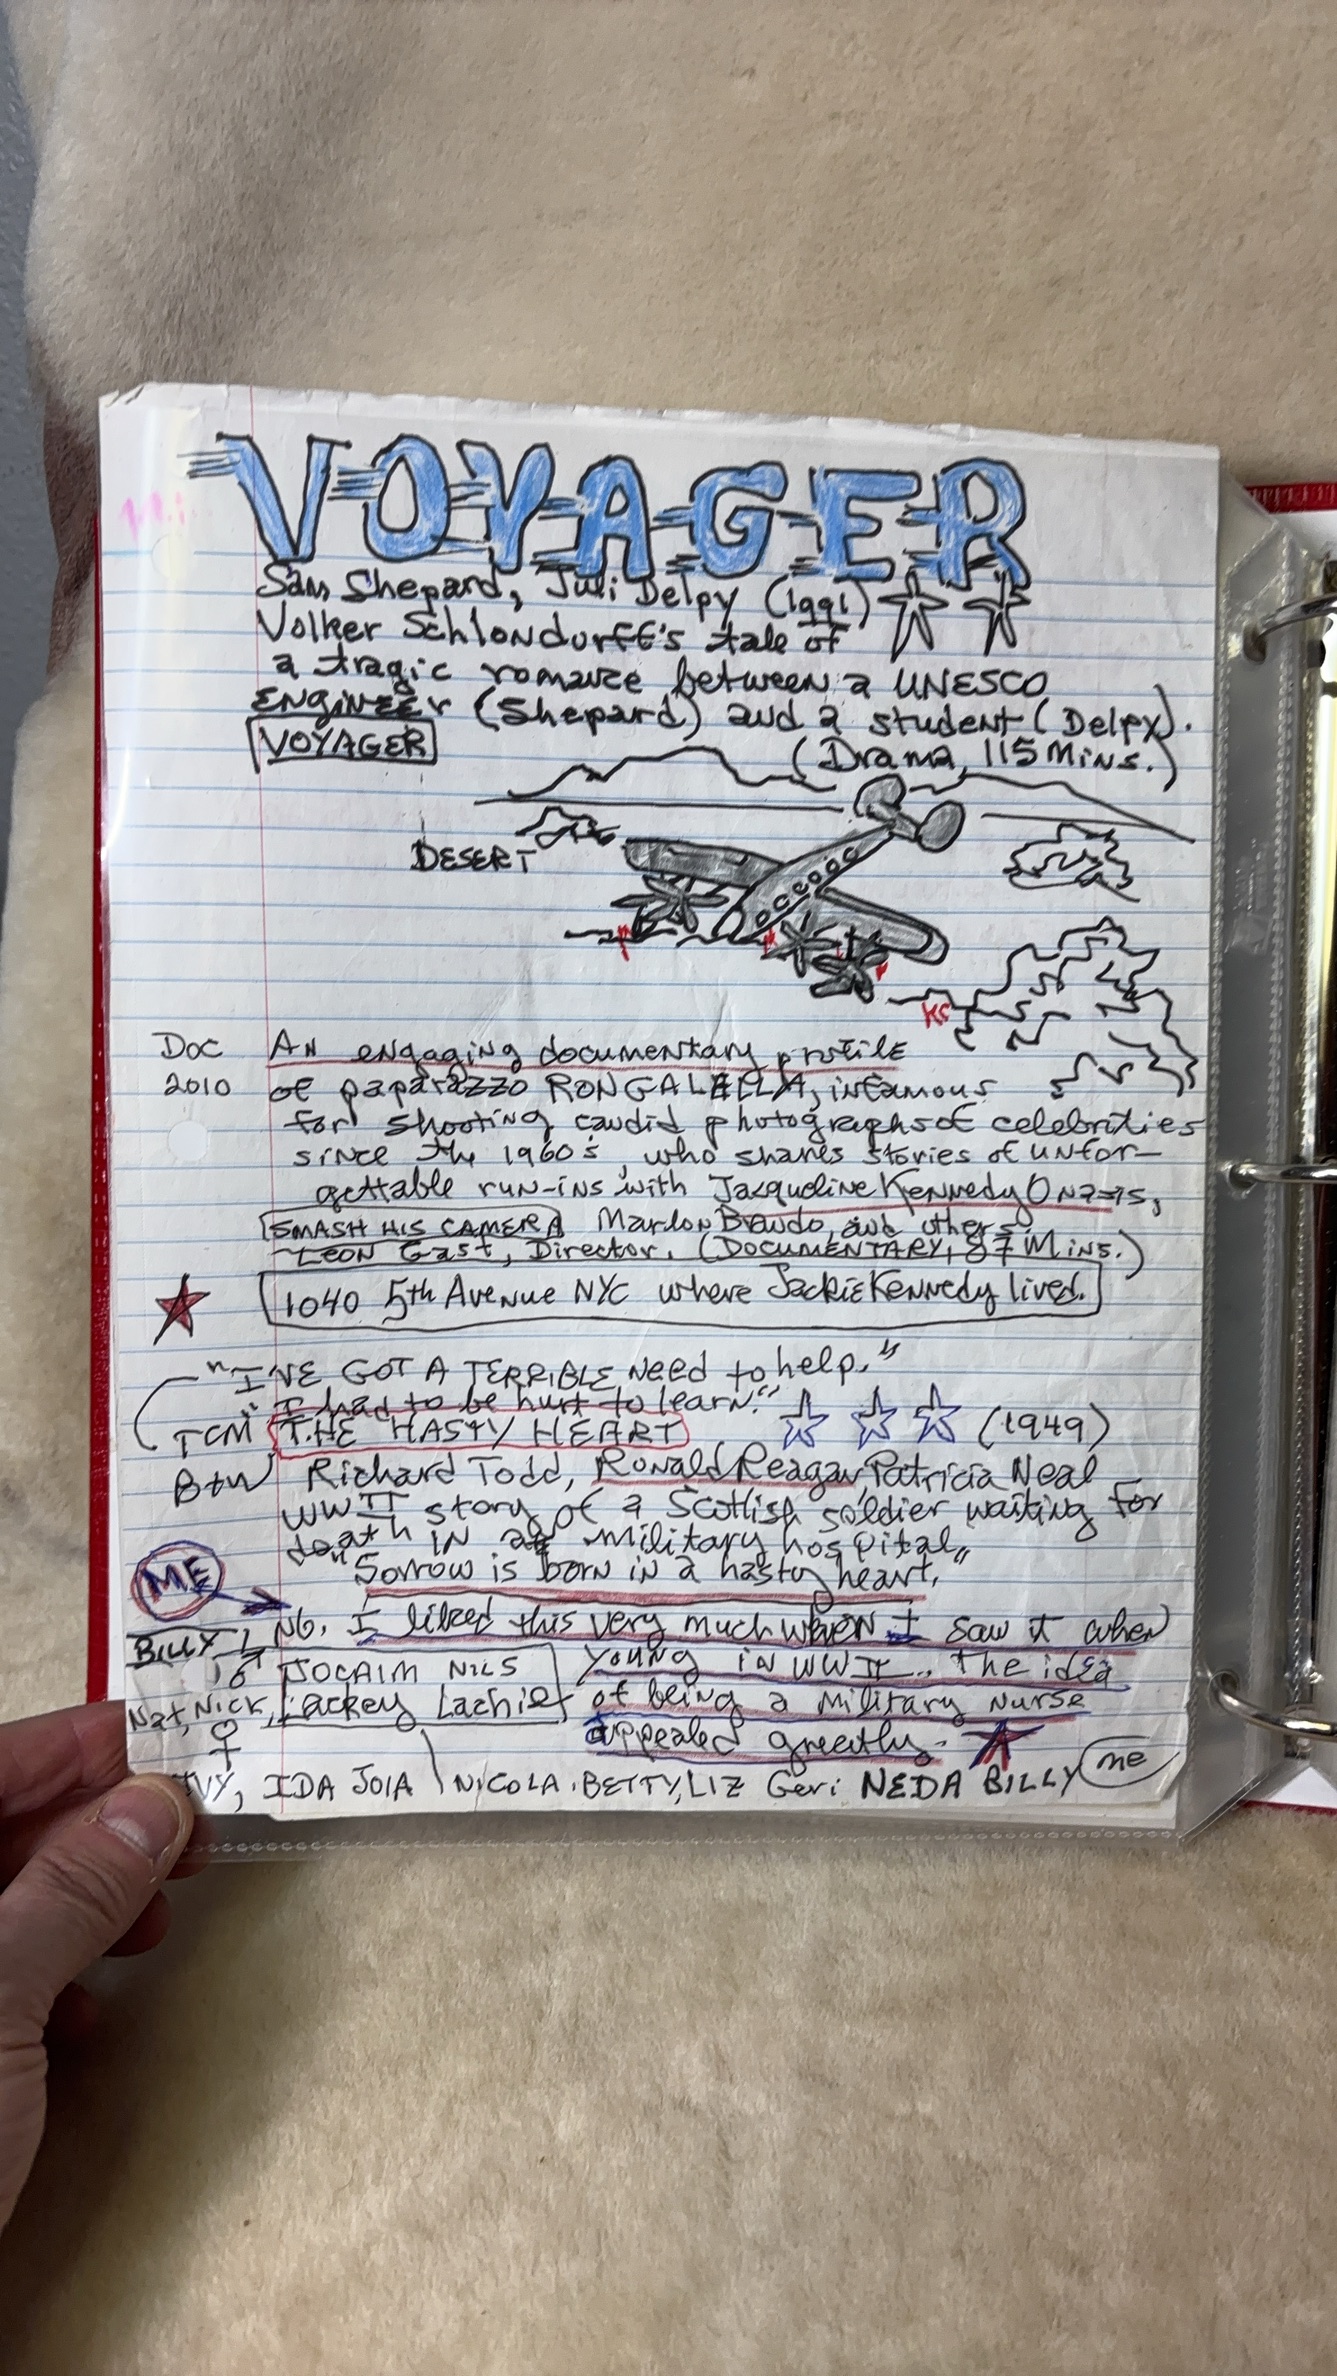 VOYAGER
Sam Shepard, Juli Delpy (1991)
Volker Schlondurff's tale of
a tragic romance between a UNESCO
ENGINEEr (Shepard) and a student (Delpy).
VOYAGER
(Drama, 115 Mins.)
DESERT
KS
Doc An engaging documentary profile
2010 of paparazzo RON GALELLA, infamous
for shooting candid photographs of celebrities
since the 1960's, who shares stories of unfor-
gettable run-ins with Jacqueline Kennedy Onasis,
SMASH HIS CAMERA Marlon Brando, and others
LEON Gast, Director. (DOCUMENTARY, 87 Mins.)
1040 5th Avenue NYC where Jackie Kennedy lived.
"I'VE GOT A TERRIBLE NEED to help."
"I had to be hurt to learn."
TCM THE HASTY HEART (1949)
B+W Richard Todd, Ronald Reagan, Patricia Neal
WW II story of a Scottish soldier waiting for
death in a military hospital
"Sorrow is born in a hasty heart."
ME
NG. I liked this very much when I saw it when
BILLY
JOCAIM NILS young in WW II.. The idea
Nat, Nick, Lackey Lachie of being a military nurse
appealed greatly.
IVY, IDA JOIA NICOLA. BETTY, LIZ Geri NEDA BILLY me